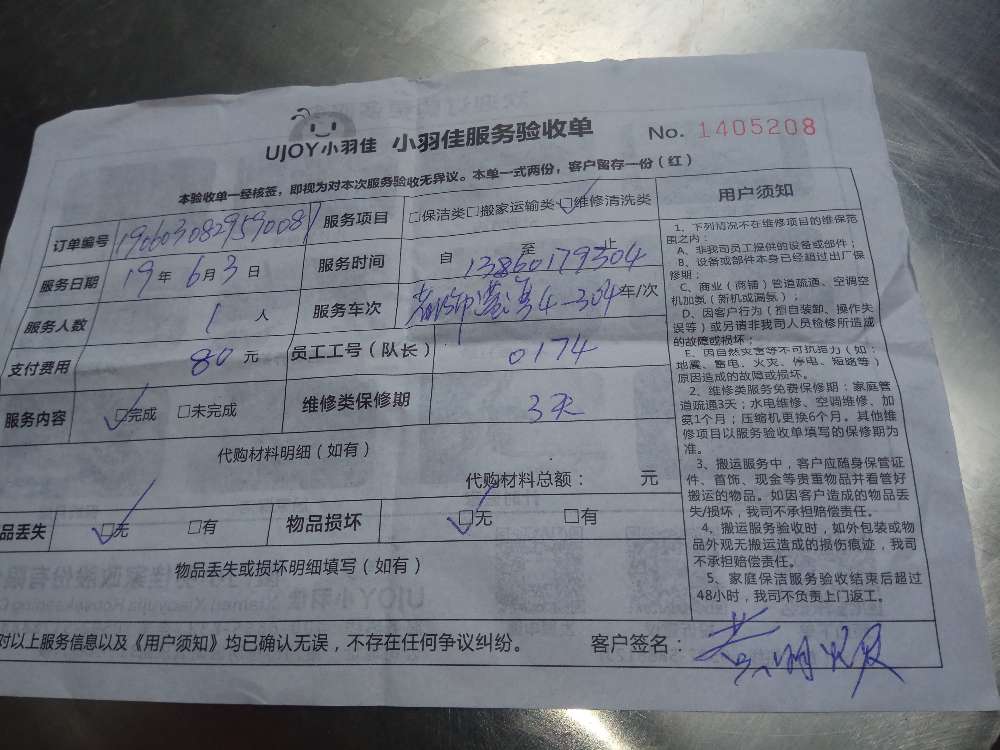 UJOY小羽佳 小羽佳服务验收单 No. 1405208
本验收单一经核签，即视为对本次服务验收无异议。本单一式两份，客户留存一份（红）
订单编号 190603082959008 服务项目 □保洁类□搬家运输类□维修清洗类
服务日期 19年6月3日 服务时间 自 至 止
13860179304
服务人数 1人 服务车次 4-304车/次
支付费用 80元 员工工号（队长） 0174
服务内容 □完成 □未完成 维修类保修期 3天
代购材料明细（如有）
代购材料总额： 元
品丢失 □无 □有 物品损坏 □无 □有
物品丢失或损坏明细填写（如有）
对以上服务信息以及《用户须知》均已确认无误，不存在任何争议纠纷。 客户签名：
用户须知
1、下列情况不在维修项目的维保范
围之内：
A、非我司员工提供的设备或部件；
B、设备或部件本身已经超过出厂保
修期；
C、商业（商铺）管道疏通、空调空
机加氨（新机或漏氨）；
D、因客户行为（擅自装卸、操作失
误等）或另请非我司人员检修所造成
的故障或损坏；
E、因自然灾害等不可抗拒力（如：
地震、雷电、火灾、停电、短路等）
原因造成的故障或损坏。
2、维修类服务免费保修期：家庭管
道疏通3天；水电维修、空调维修、加
氨1个月；压缩机更换6个月。其他维
修项目以服务验收单填写的保修期为
准。
3、搬运服务中，客户应随身保管证
件、首饰、现金等贵重物品并看管好
搬运的物品。如因客户造成的物品丢
失/损坏，我司不承担赔偿责任。
4、搬运服务验收时，如外包装或物
品外观无搬运造成的损伤痕迹，我司
不承担赔偿责任。
5、家庭保洁服务验收结束后超过
48小时，我司不负责上门返工。